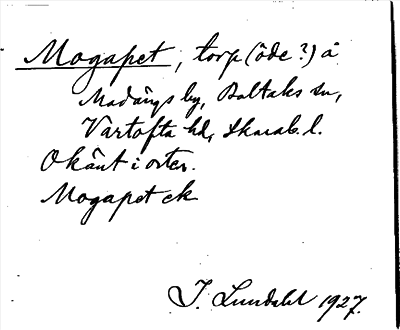 Mogapet, torp (öde?) å
Madängs by, Baltaks sn,
Vartofta hd, Skarab. l.
Okänt i orten.
Mogapet ek
J. Lundahl 1927.